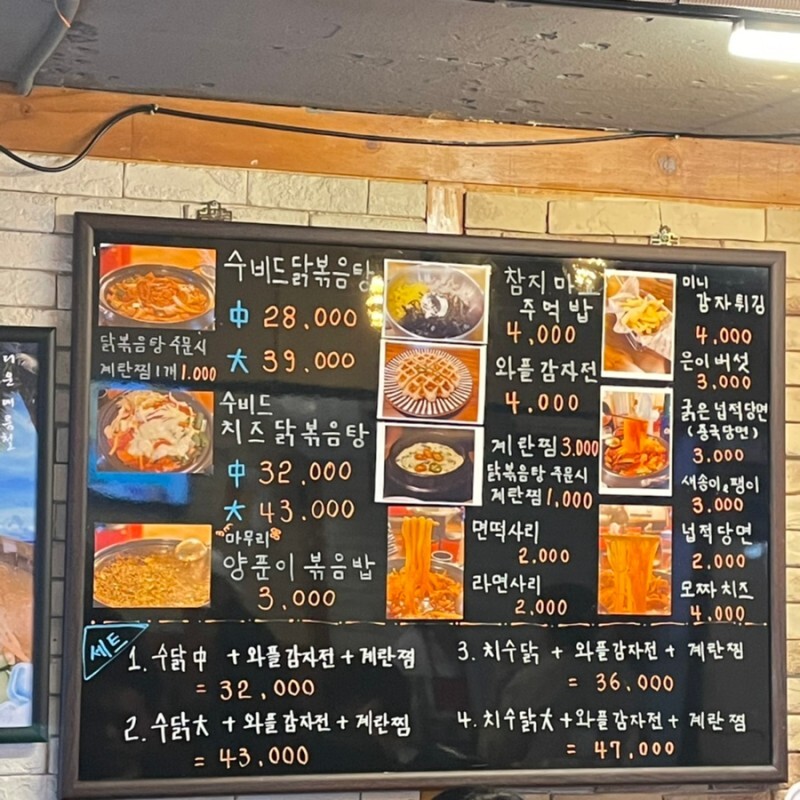 수비드닭볶음탕
中 28.000
大 39.000
닭볶음탕 주문시
계란찜1개 1.000
수비드
치즈닭볶음탕
中 32.000
大 43.000
마무리
양푼이볶음밥
3.000
참지마요
주먹밥
4.000
와플감자전
4.000
계란찜 3.000
닭볶음탕 주문시
계란찜 1,000
면떡사리
2.000
라면사리
2.000
미니
감자튀김
4.000
은이버섯
3.000
굵은 넙적당면
(중국당면)
3.000
새송이&팽이
3.000
넙적당면
2.000
모짜치즈
4.000
세트
1. 수닭中 + 와플감자전 + 계란찜
= 32,000
2. 수닭大 + 와플감자전 + 계란찜
= 43,000
3. 치수닭 + 와플감자전 + 계란찜
= 36,000
4. 치수닭大 + 와플감자전 + 계란찜
= 47,000